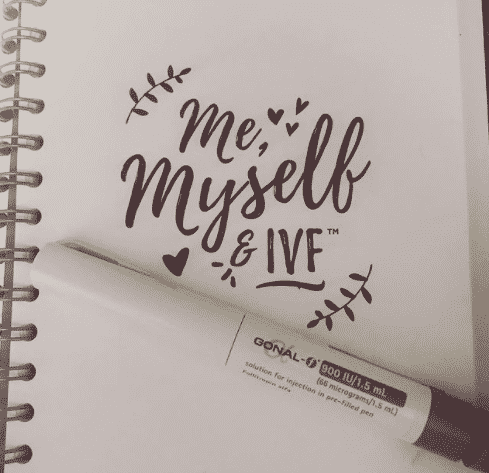 Me,
Myself
& IVF™
GONAL-f® 900 IU/1.5 mL
(66 micrograms/1.5 mL)
solution for injection in pre-filled pen